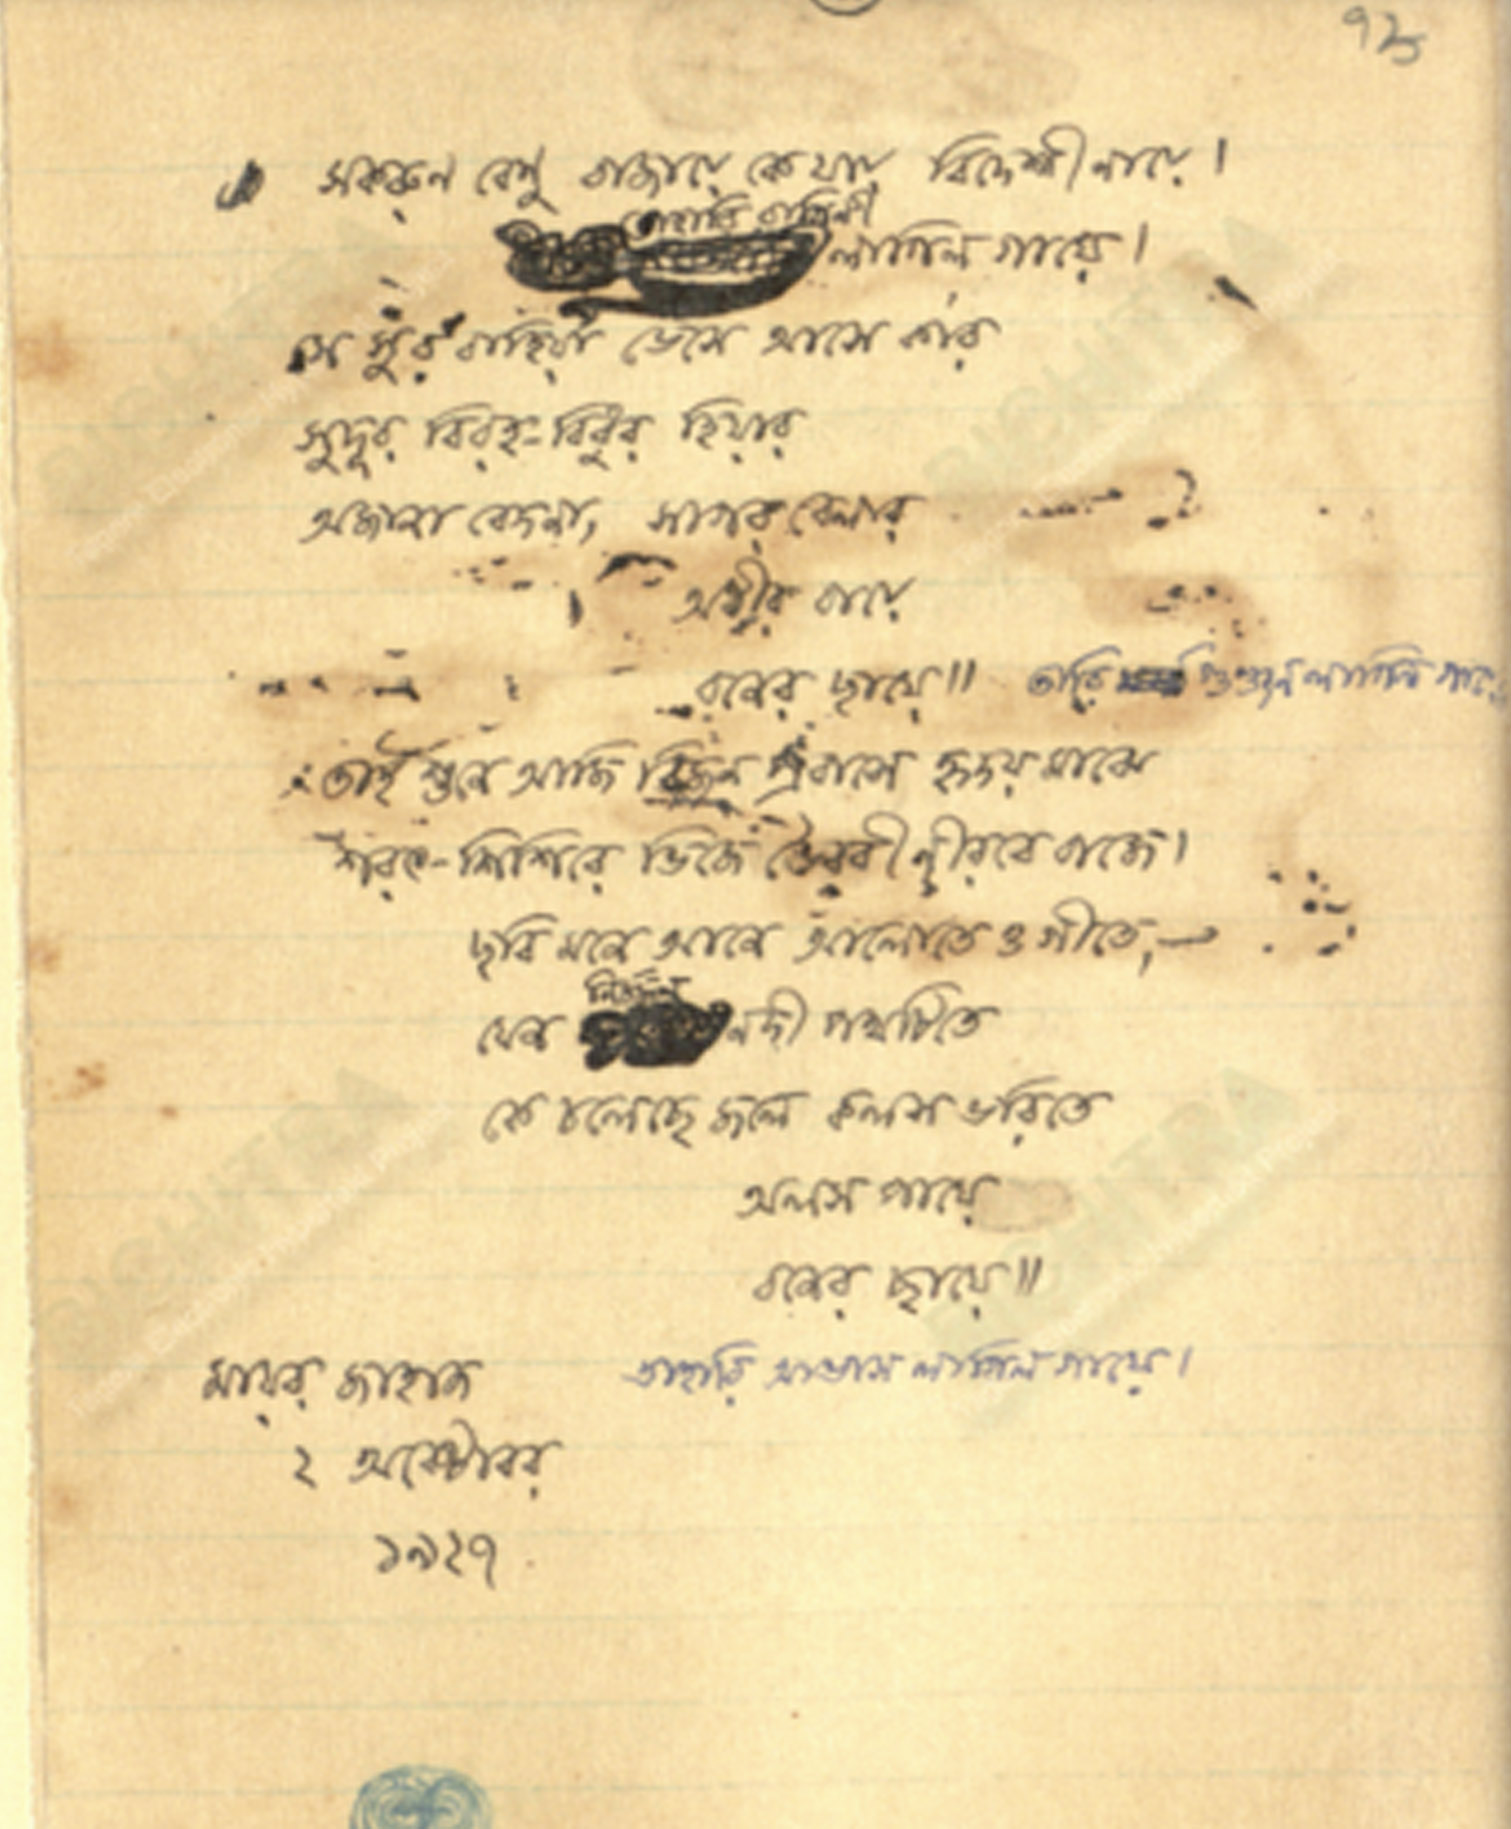 ৭৮
সকরুণ বেণু বাজায়ে কে যায় বিদেশী নায়ে।
তাহারি রাগিণী
লাগিল গায়ে।
সে সুর বাহিয়া ভেসে আসে কার
সুদূর বিরহ-বিধুর হিয়ার
অজানা বেদনা, সাগর বেলার
অধীর বায়ে
বনের ছায়ে॥ তারি লাগিল গায়ে
তাই শুনে আজি বিজন প্রবাসে হৃদয় মাঝে
শরৎ-শিশিরে ভিজে ভৈরবী নীরবে বাজে।
ছবি মনে আনে আলোতে ও গীতে,—
নির্জ্জন
যেন নদী পথটিতে
কে চলেছে জলে কলস ভরিতে
অলস পায়ে
বনের ছায়ে॥
তাহারি আভাস লাগিল গায়ে।
মায়র জাহাজ
২ অক্টোবর
১৯২৭